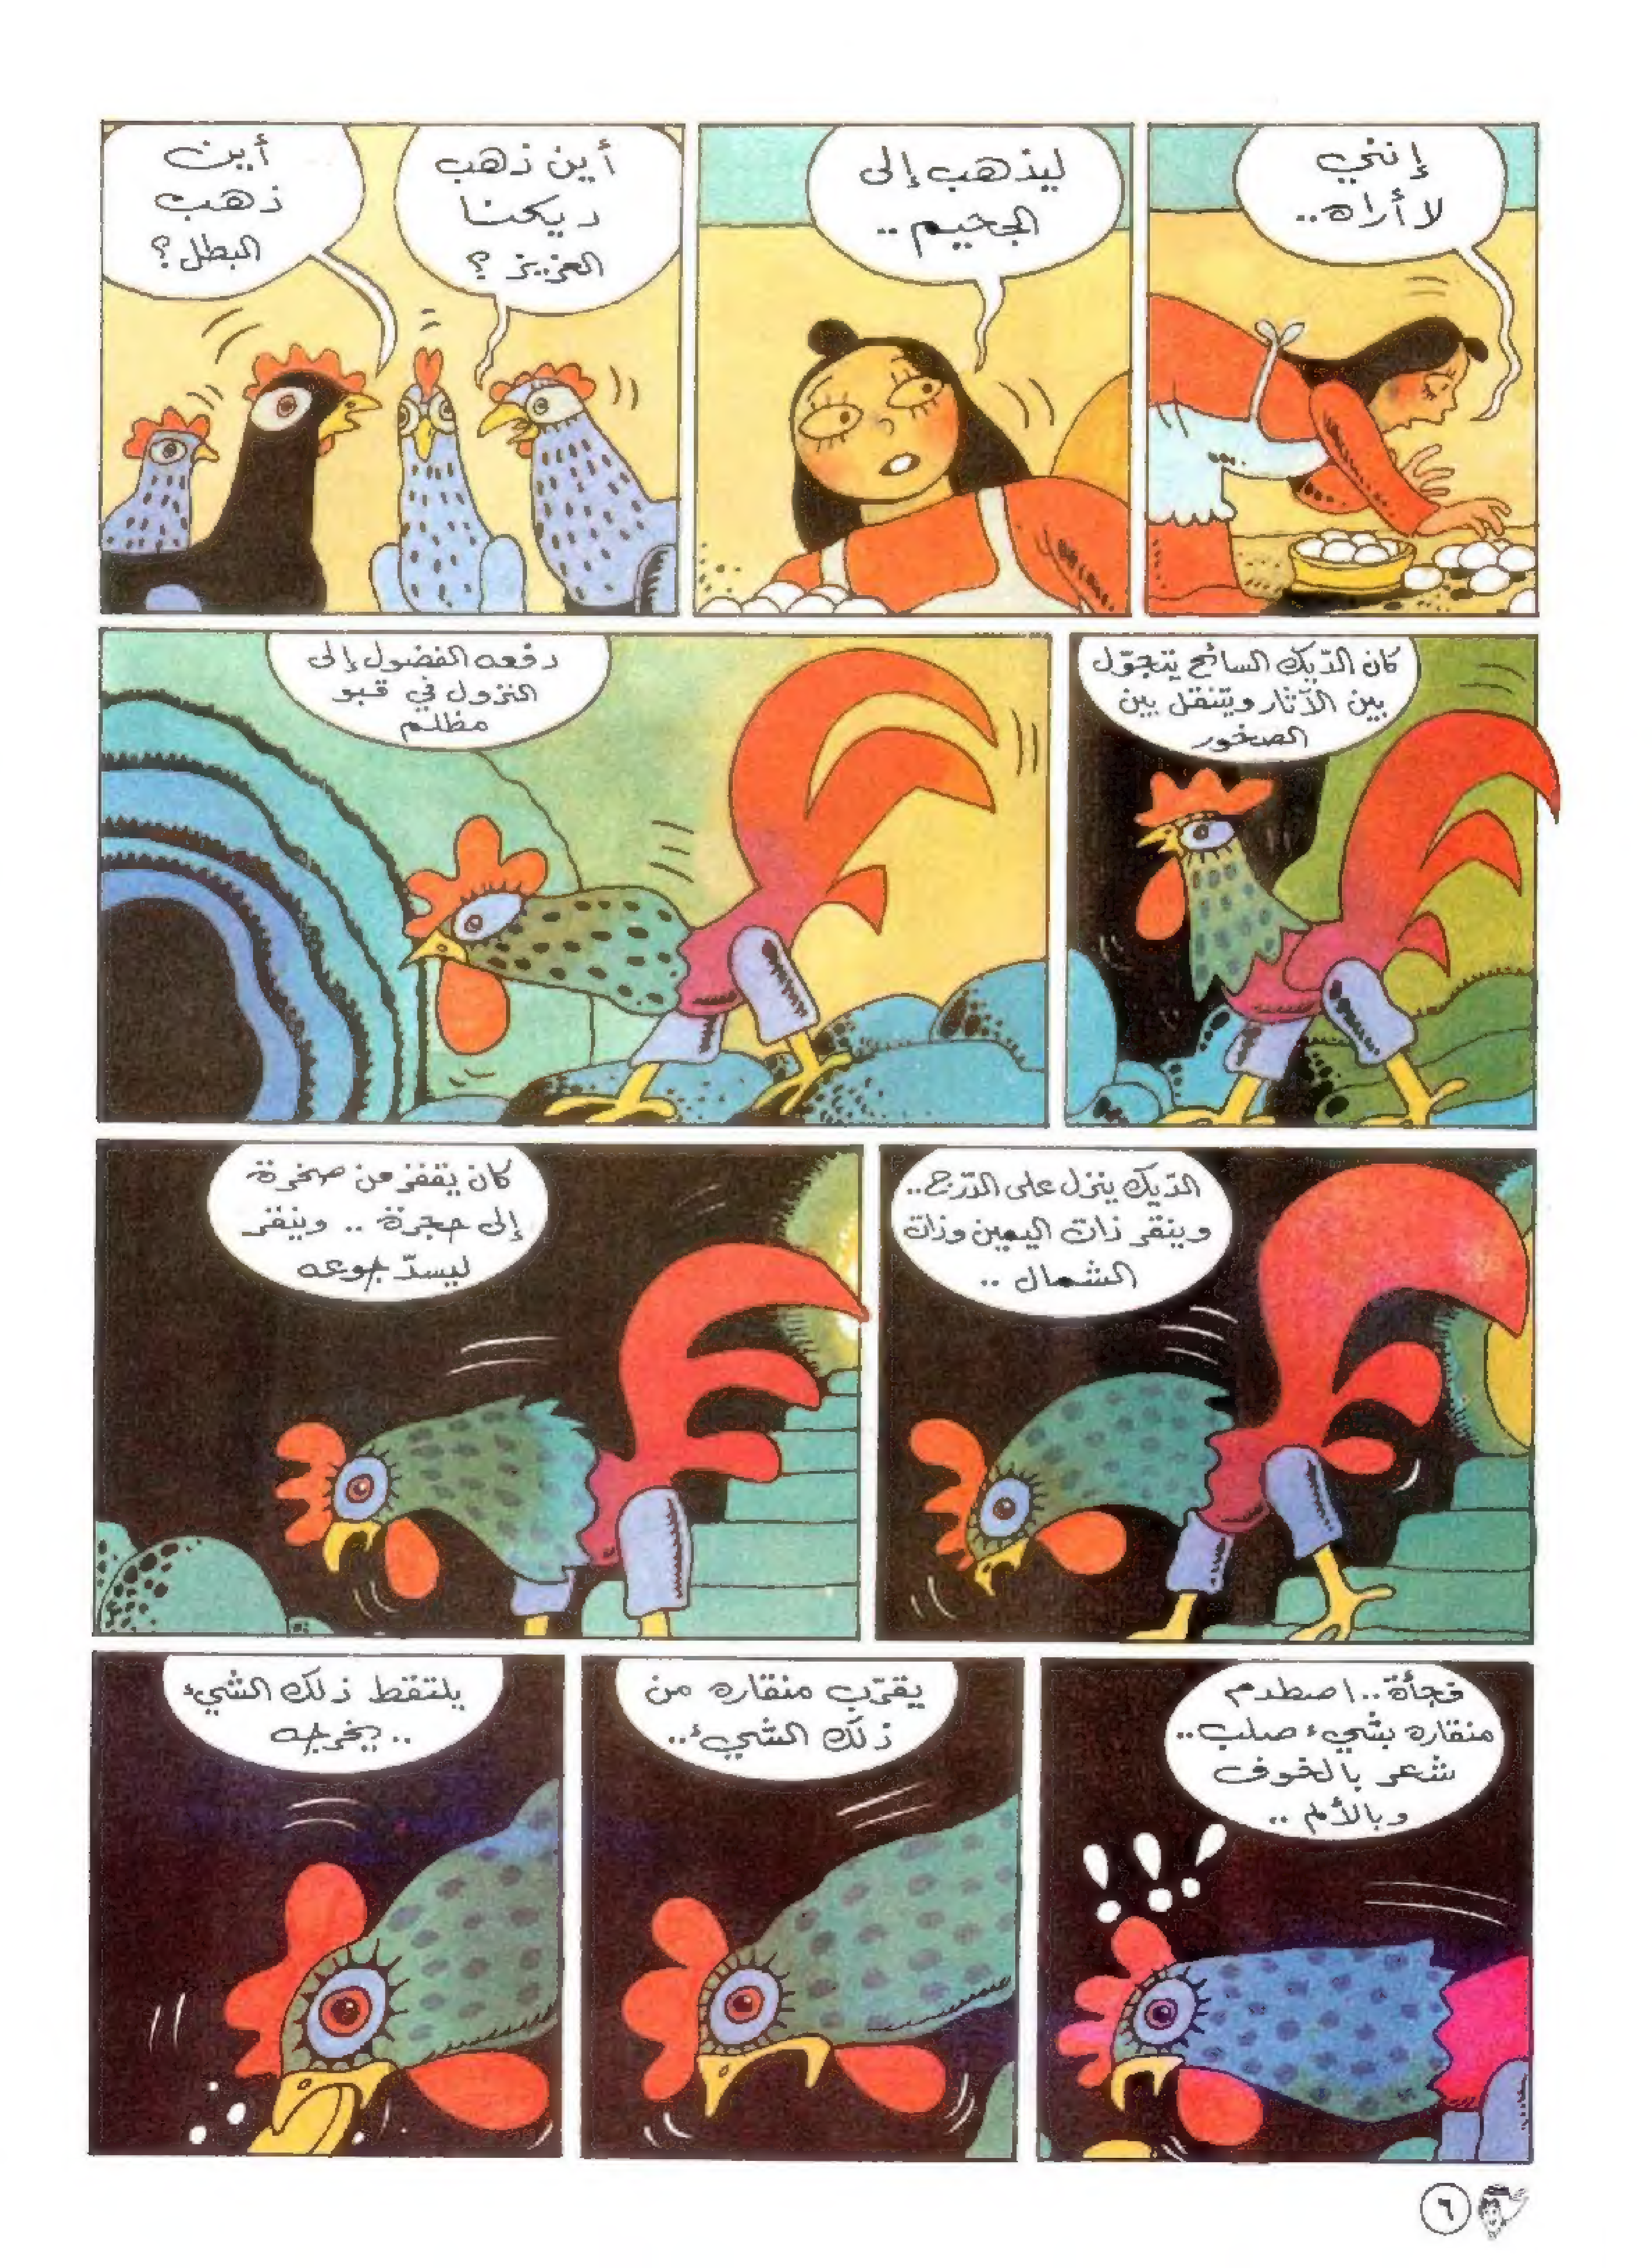 إنني
لا أراه..
ليذهب إلى
الجحيم..
أين ذهب
ديكنا
العزيز؟
أين
ذهب
البطل؟
كان الدّيك السائح يتجوّل
بين الآثار ويتنقل بين
الصخور
دفعه الفضول إلى
النزول في قبو
مظلم
الدّيك ينزل على الدّرج..
وينقر ذات اليمين وذات
الشمال..
كان يقفز من صخرة
إلى حجرة.. وينقر
ليسدّ جوعه
فجأة.. اصطدم
منقاره بشيء صلب..
شعر بالخوف
وبالألم..
!!!
يقرّب منقاره من
ذلك الشيء..
يلتقط ذلك الشيء
.. يخرجه
٦